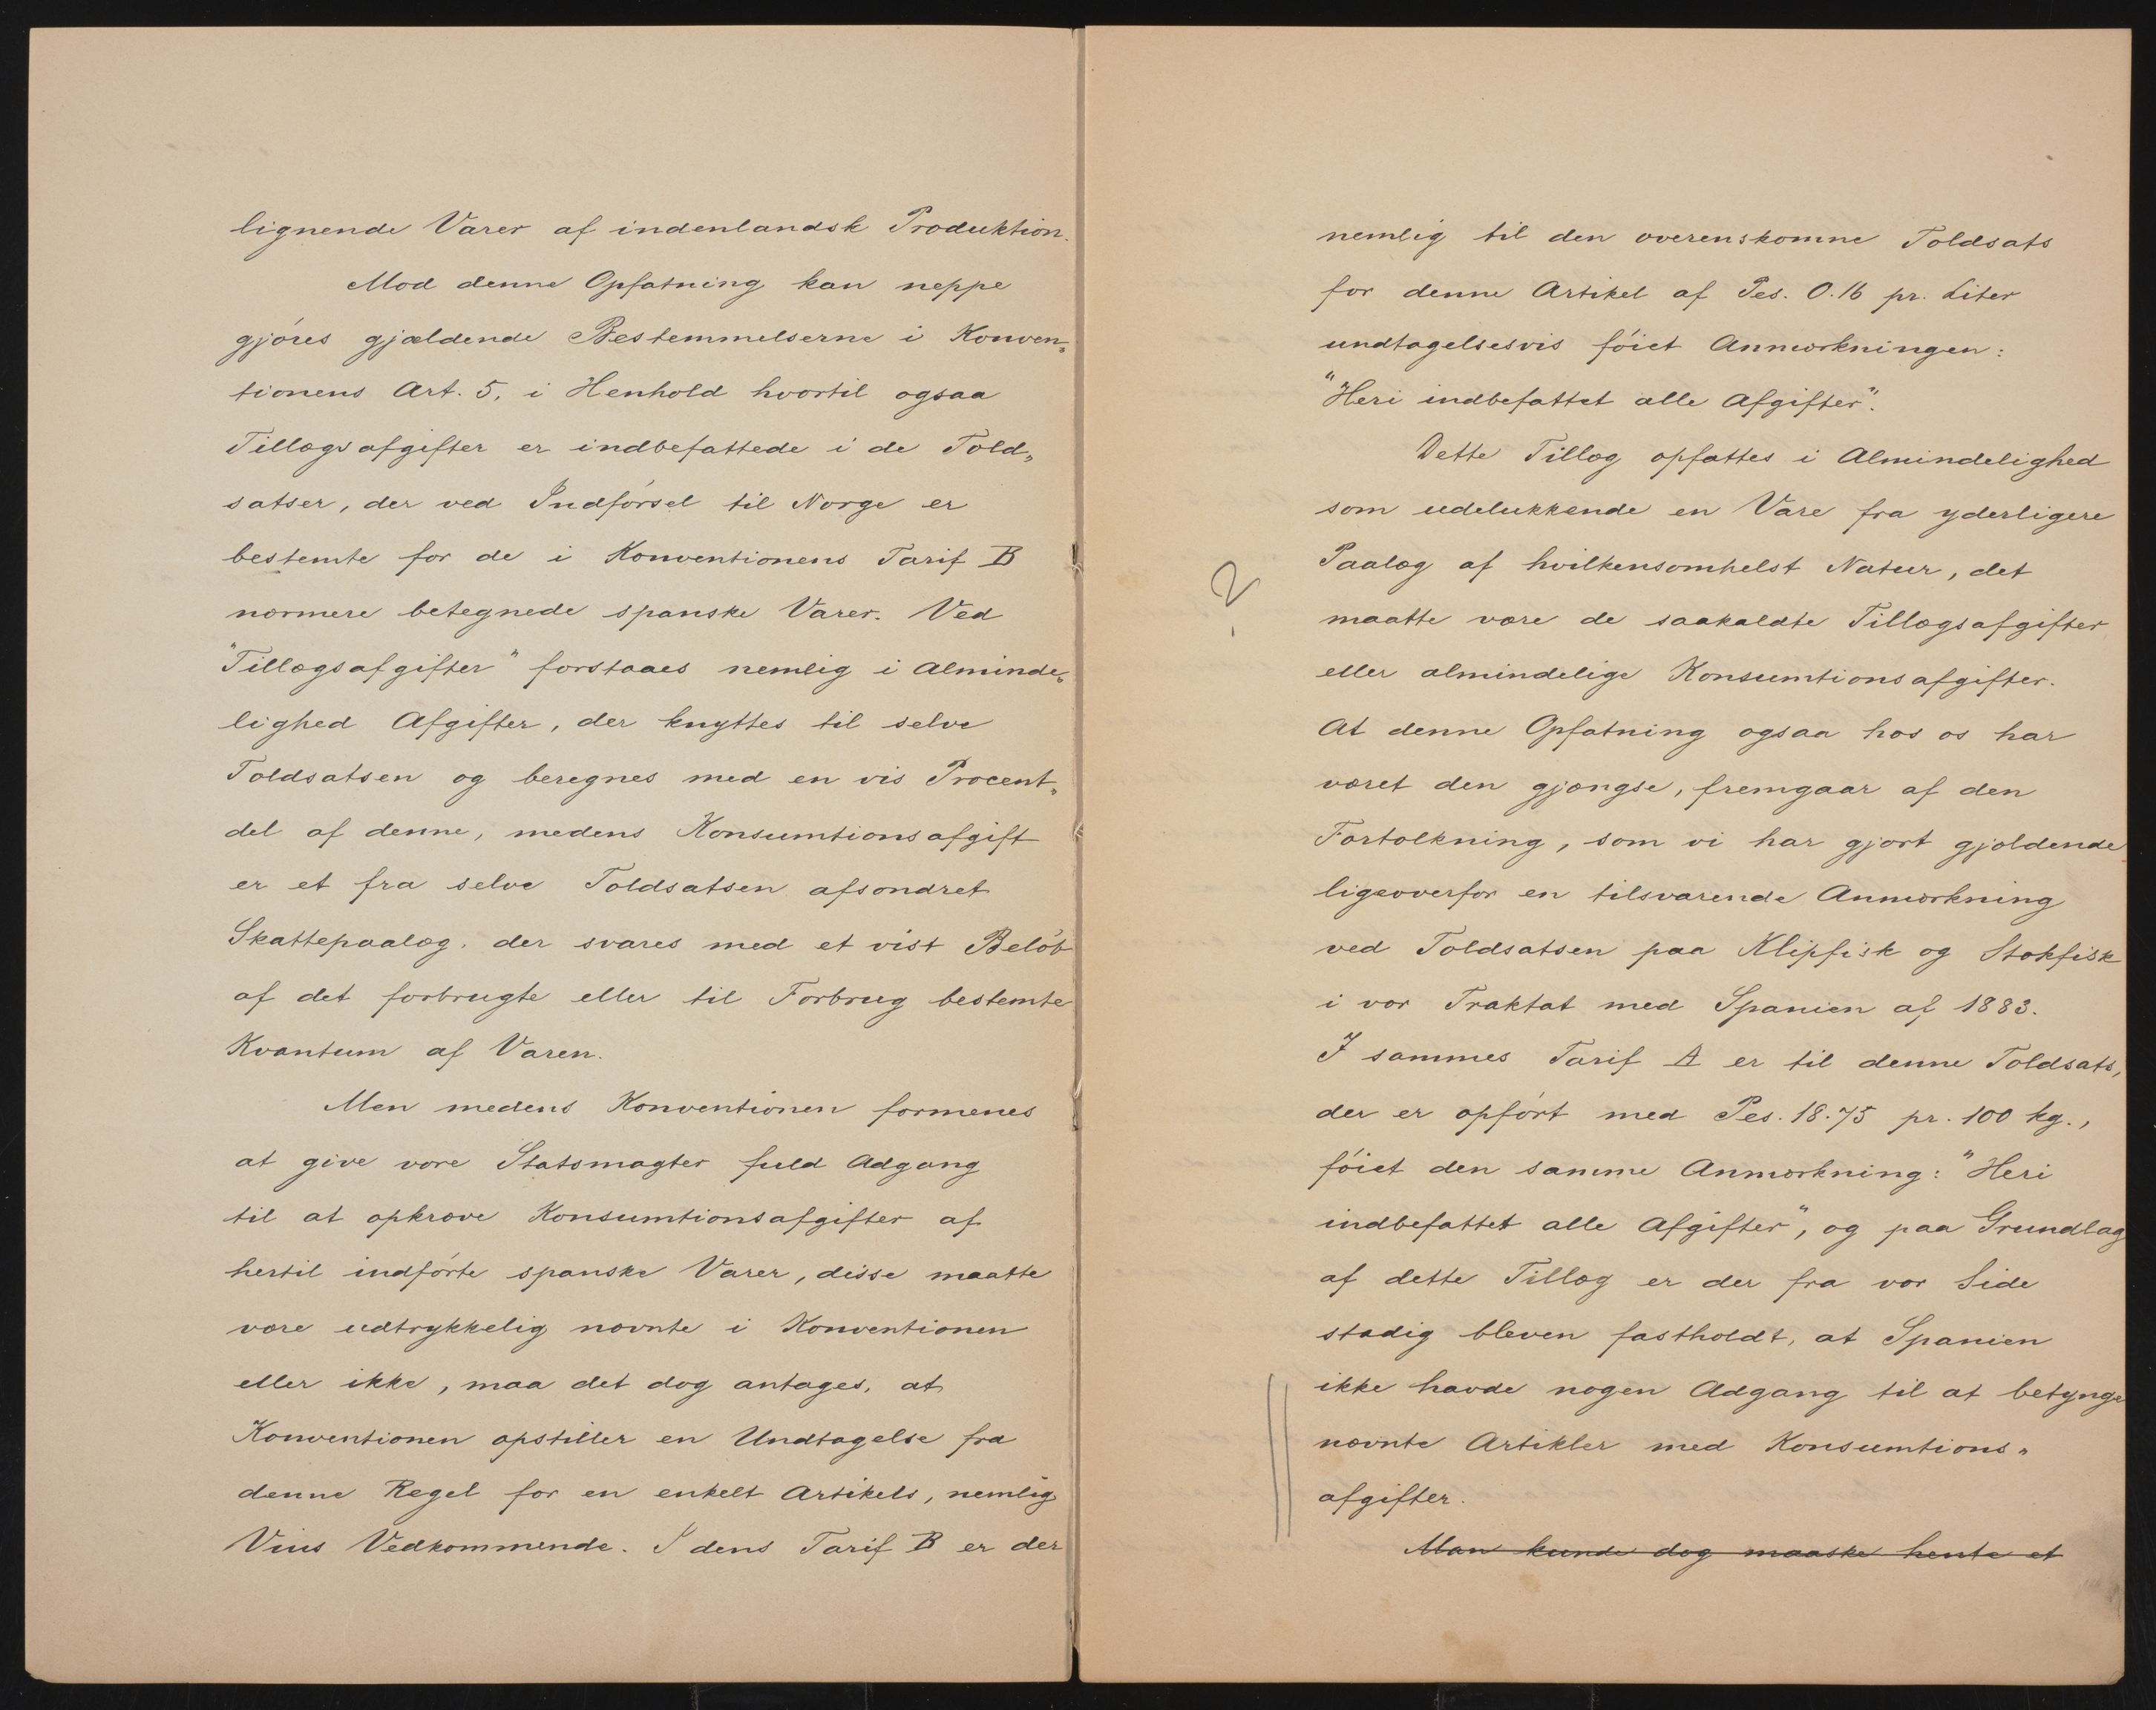 lignende Varer af indenlandsk Produktion.
Mod denne Opfatning kan neppe
gjóres gjældende Bestemmelserne i Konven„
tionens Art. 5, i Henhold hvortil ogsaa
Tillægsafgifter er indbefattede i de Told„
satser, der ved Indfórsel til Norge er
bestemte for de i Konventionens Tarif B
nærmere betegnede spanske Varer. Ved
"Tillægsafgifter" forstaaes nemlig i Alminde„
lighed Afgifter, der knyttes til selve
Toldsatsen og beregnes med en vis Procent„
del af denne, medens Konsumtionsafgift
er et fra selve Toldsatsen afsondret
Skattepaalæg, der svares med et vist Belób
af det forbrugte eller til Forbrug bestemte
Kvantum af Varen.
Men medens Konventionen formenes
at give vore Statsmagter fuld Adgang
til at opkræve Konsumtionsafgifter af
hertil indfórte spanske Varer, disse maatte
være udtrykkelig nævnte i Konventionen
eller ikke, maa det dog antages, at
Konventionen opstiller en Undtagelse fra
denne Regel for en enkelt Artikels, nemlig
Vins Vedkommende. I dens Tarif B er der
nemlig til den overenskomne Toldsats
for denne Artikel af Pes. 0.16 pr. Liter
undtagelsesvis fóiet Anmærkningen:
"Heri indbefattet alle Afgifter".
Dette Tillæg opfattes i Almindelighed
som udelukkende en Vare fra yderligere
Paalæg af hvilkensomhelst Natur, det
?
maatte være de saakaldte Tillægsafgifter
eller almindelige Konsumtionsafgifter.
At denne Opfatning ogsaa hos os har
været den gjængse, fremgaar af den
Fortolkning, som vi har gjort gjældende
ligeoverfor en tilsvarende Anmærkning
ved Toldsatsen paa Klipfisk og Stokfisk
i vor Traktat med Spanien af 1883.
I sammes Tarif A er til denne Toldsats,
der er opfórt med Pes. 18.75 pr. 100 kg.,
fóiet den samme Anmærkning: "Heri
indbefattet alle Afgifter", og paa Grundlag
af dette Tillæg er der fra vor Side
stadig bleven fastholdt, at Spanien
ikke havde nogen Adgang til at betynge
nævnte Artikler med Konsumtions„
afgifter.
Man kunde dog maaske hente et